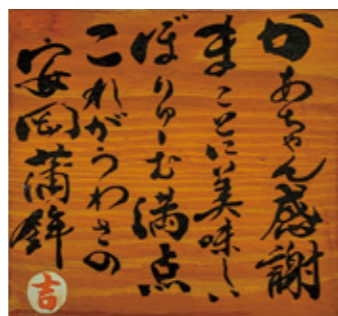 かあちゃん感謝
まことに美味しい
ぼりゅーむ満点
これがうわさの
安岡蒲鉾
吉